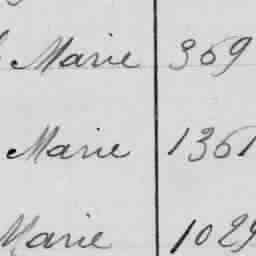 Marie 369
Marie 1361
Marie 1029